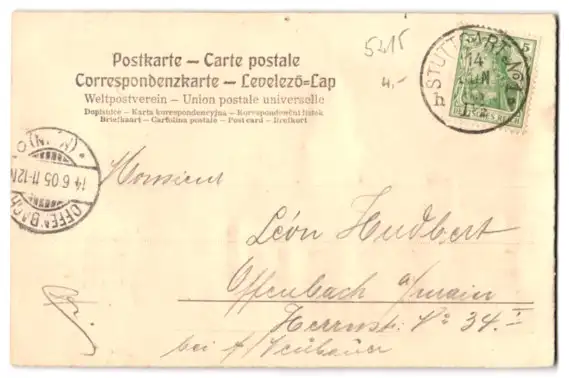 Postkarte – Carte postale
Correspondenzkarte – Levelező-Lap
Weltpostverein – Union postale universelle
Dopisnice – Karta korrespondencyjna – Korrespondenční lístek
Briefkaart – Cartolina postale – Post card – Brefkort
5215
4,-
STUTTGART No 1
14
JUN
h
5
OFFENBACH (MAIN)
14.6.05.11-12N
Monsieur
Léon Hudbert
Offenbach a/main
Herrnstr. No 34. I
bei f/Neubauer